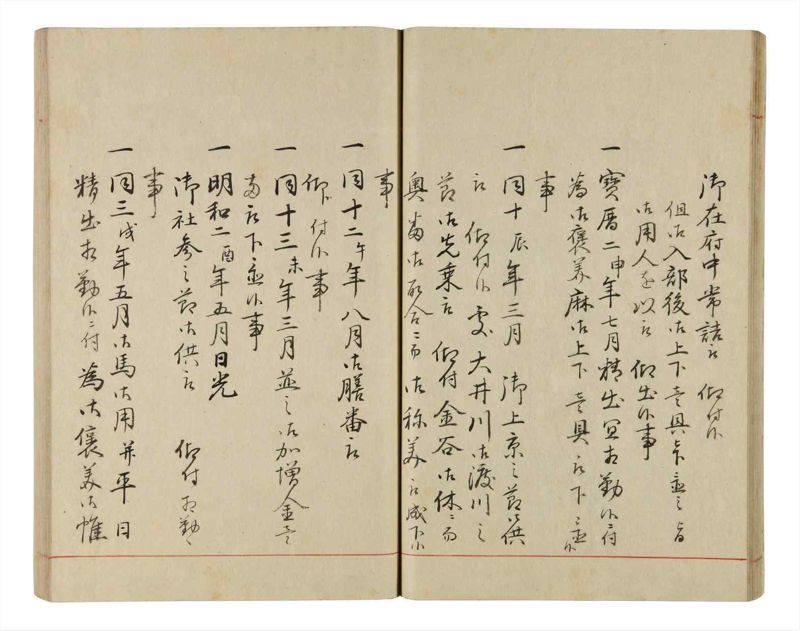 御在府中常詰被 仰付候
但御入部後御上下壱具
御用人を以被 仰出候事
一寳暦二申年七月精出罷勤候ニ付
為御褒美麻御上下壱具被下置候
事
一同十辰年三月 御上京之節御供
被 仰付候処大井川御渡川之
節御先乗被 仰付金谷御休ニ而
奥 御称美被成下候
事
一同十二午年八月御膳番被
仰付候事
一同十三未年三月 御加増金壱
両被下置候事
一明和二酉年五月日光
御社参之節御供被 仰付相勤候
事
一同三戌年五月御馬御用并平日
精出相勤候ニ付為御褒美御帷